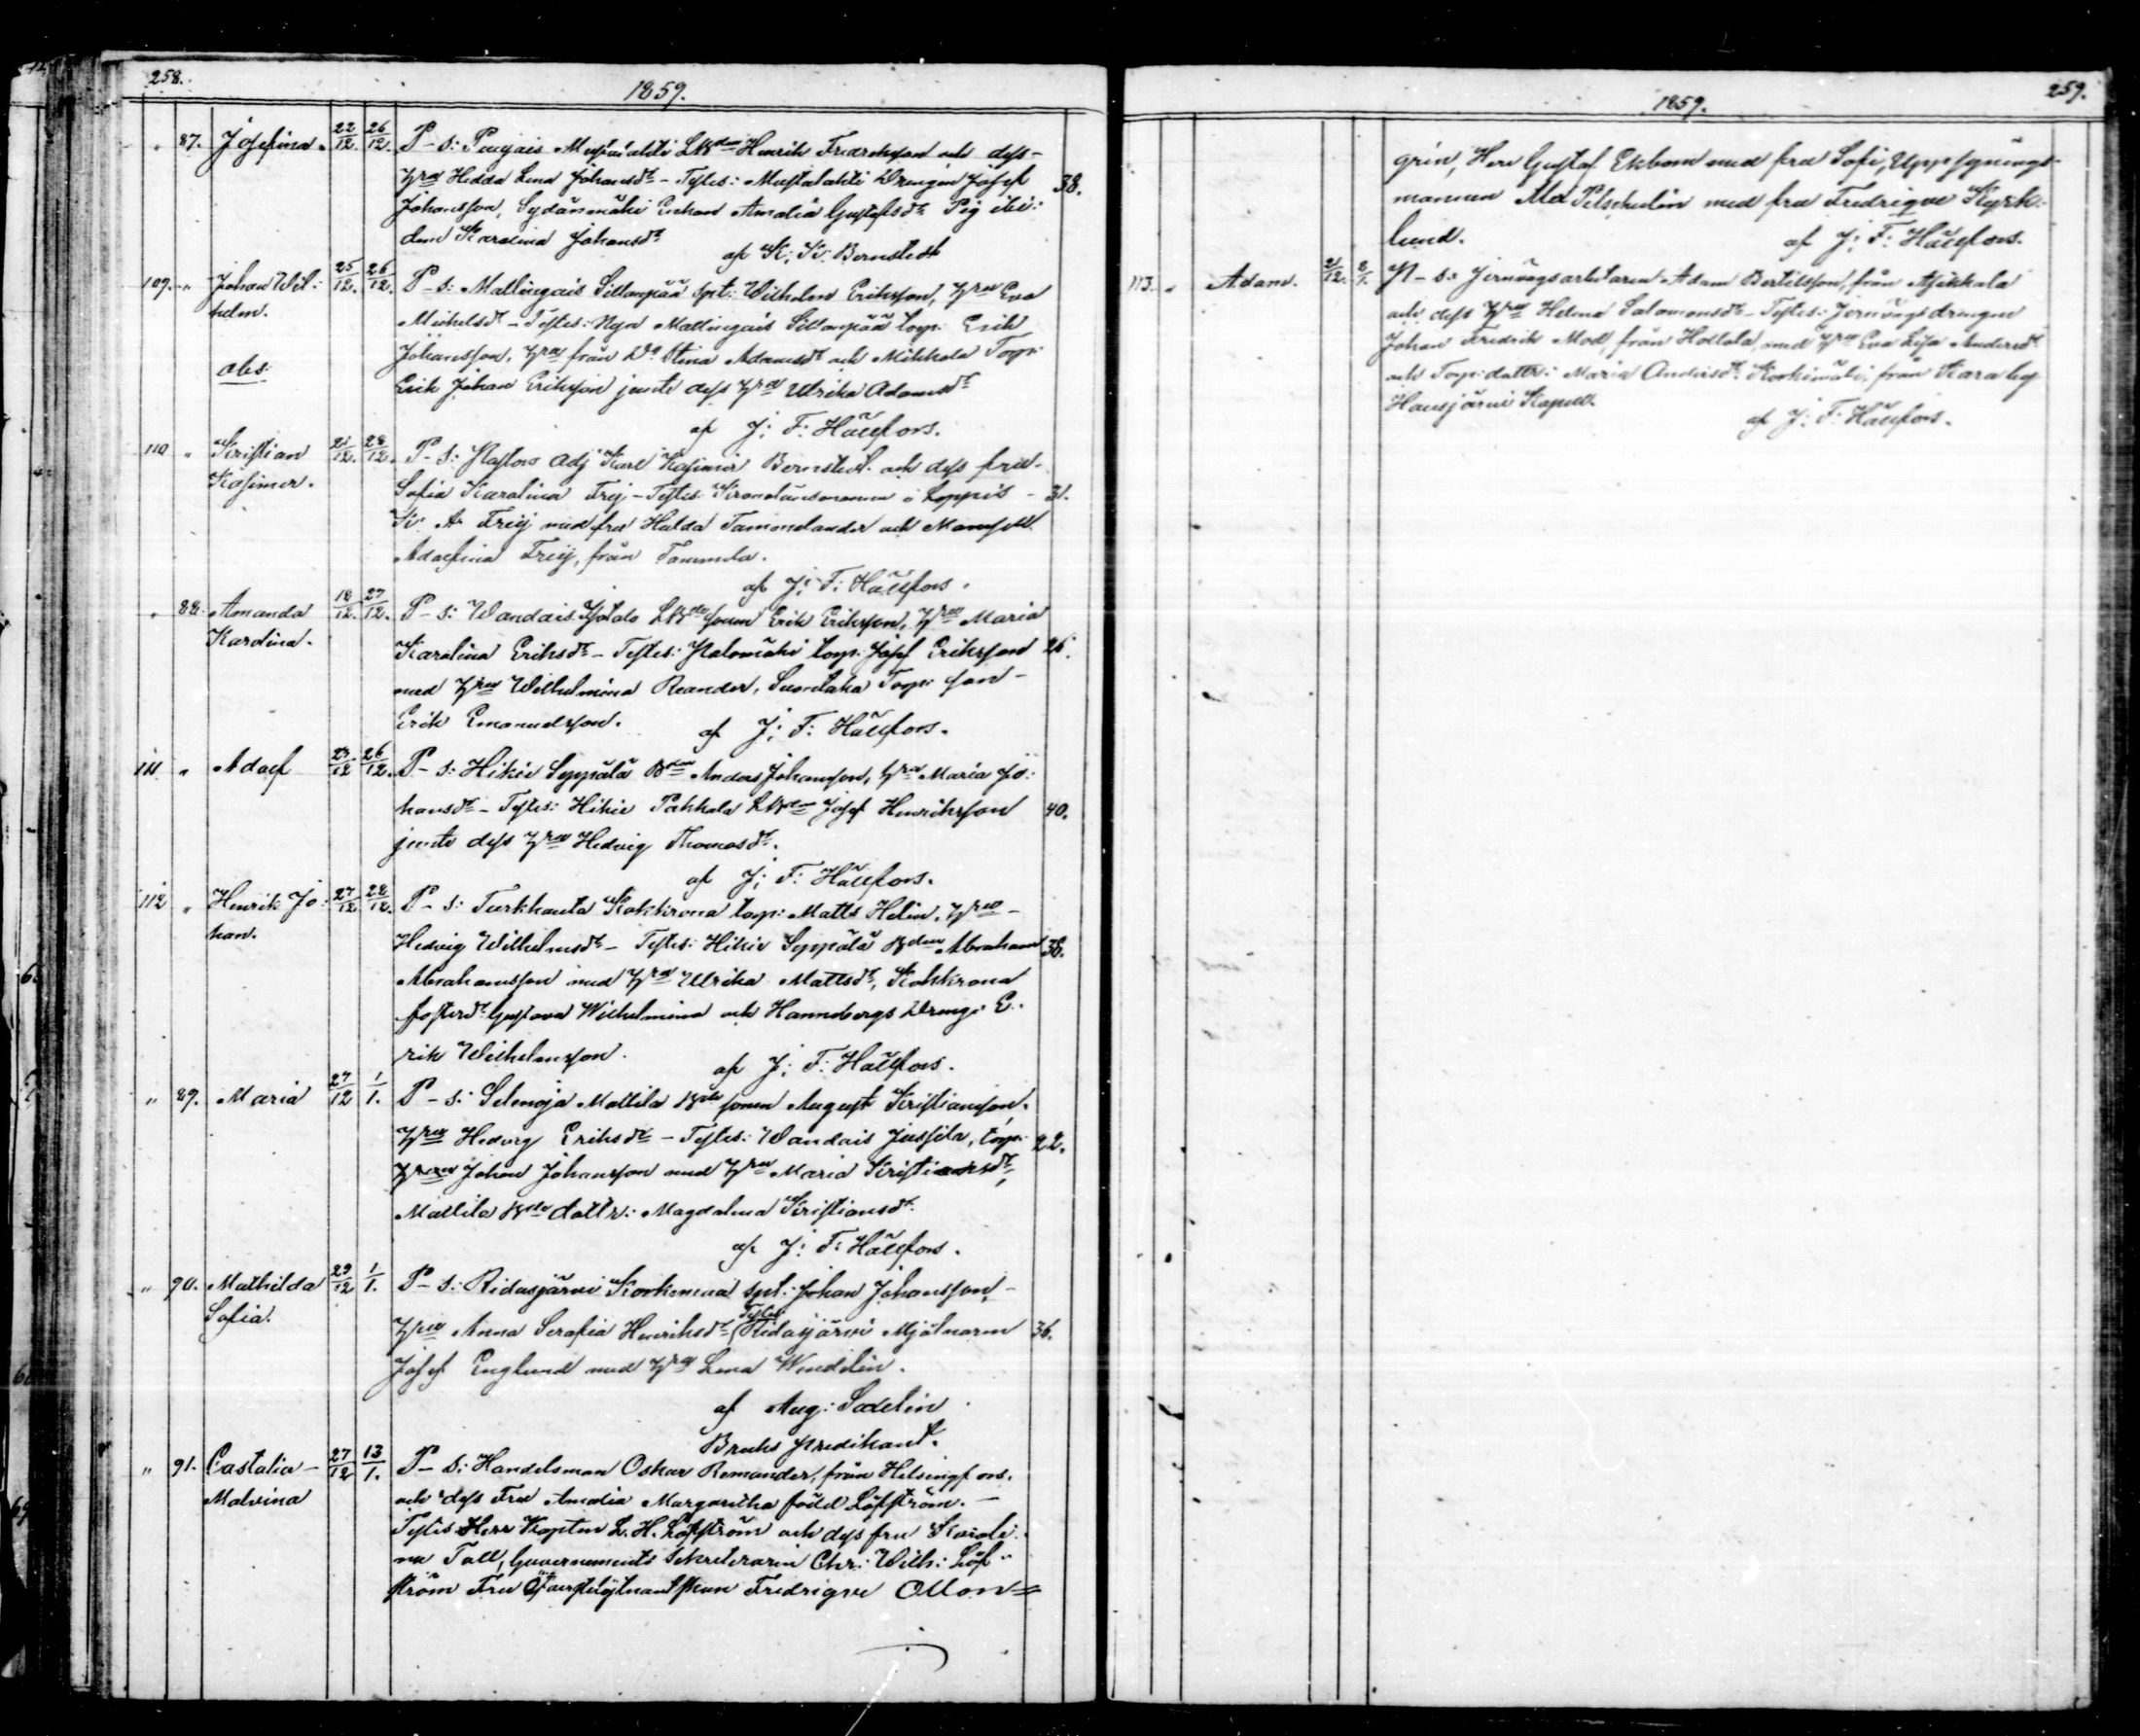 258.
1859.
" 87. Josefina. 22/12. 26/12. P-s: Pengais Mustalahti LBden Henrik Fredriksson och dess
hru Hedda Lena Johansdr - Testes: Mustalahti Drengen Josef 38.
Johansson, Sydänmäki Enkan Amalia Gustafsdr Pig ibi:
dem Karolina Johansdr
af K: K: Bernstedt
109. " Johan Wil: 25/12. 26/12. P-s: Mallingais Sillanpää spt: Wilhelm Eriksson, hru Eva
helm. Michelsdr - Testes: Nya Mallingais Sillanpää torp: Erik
Johansson, hru från Do Stina Adamsdr och Mikkola Torp:
obs: Erik Johan Eriksson jemte dess hru Ulrika Adamsdr
af J: F: Hällfors.
110 " Kristian 21/12. 28/12. P-s: Pastors Adj Karl Kasimir Bernstedt och dess fru
Kasimir. Sofia Karolina Frej - Testes: Kronolänsmannen i Loppis - 31.
K: A: Freij med fru Hulda Tammelander och Mamsell
Adolfina Freij, från Tammela.
af J: F: Hällfors.
" 88. Amanda 18/12. 27/12. P-s: Wandais Ylötalo LBde sonen Erik Eriksson, hru Maria
Karolina. Karolina Eriksdr - Testes: Palomäki torp: Josef Eriksson 26.
med hru Wilhelmina Reander, Suontaka Torp: son -
Erik Emanuelsson. af J: F: Hällfors.
111 " Adolf 23/12 26/12. P-s: Hikiä Seppälä Bden Anders Johansson, hru Maria Jo:
hansdr - Testes: Hikiä Pahkala LBden Josef Henriksson 40.
jemte dess hru Hedvig Thomasdr.
af J: F: Hällfors.
112 " Henrik Jo: 27/12 28/12. P-s: Turkhauta Kokkrona torp: Matts Helin, hru -
han. Hedvig Wilhelmsdr - Testes: Hikiä Seppälä Bden Abraham 36.
Abrahamsson med hru Ulrika Mattsdr, Kokkrona
fosterdr Gustava Wilhelmina och Hannebergs Dreng: E:
rik Wilhelmsson. af J: F: Hällfors.
" 89. Maria 27/12 1/1. P-s: Selänoja Mattila Bde sonen August Kristiansson,
hru Hedvig Eriksdr - Testes: Wandais Jussila, torp: 22.
Johan Johansson med hru Maria Kristiansdr,
Mattila Bde dottr: Magdalena Kristiansdr.
af J: F: Hällfors.
" 90. Mathilda 29/12 1/1. P-s: Ridasjärvi Korkeemaa spt: Johan Johansson, -
Sofia. hru Anna Serafia Henriksdr (Testes: Ridasjärvi Mjölnaren 36.
Josef Englund med hru Lena Wendelin.
af Aug: Sadelin
Bruks predikant.
" 91. Castalia - 27/12 13/1. P-s: Handelsman Oskar Remander, från Helsingfors,
Malvina och dess Fru Amalia Margaretha född Löfström. -
Testes Herr Kapten L. H. Löfström och dess fru Karoli:
na Tall, Guvernements Sekreteraren Chr: Wilh: Löf:
ström Fru Öfverstlöjtnantskan Fredrique Ollon=
1859.
259.
grén, Herr Gustaf Ekbom med fru Sofi, Uppsynings-
mannen Petschelin med fru Fredrique Kyrk:
lund. af J: F: Hällfors.
113. " Adam. 21/12. 2/1. P-s: Jernvägsarbetaren Adam Bertilsson, från Asikkala
och dess hru Helena Salomonsdr - Testes: Jernvägsdrengen
Johan Fredrik Mod, från Hollola, med hru Eva Lisa Andersdr
och Torp:dottr: Maria Andersdr Korkimäki, från Kara by
Hausjärvi Kapell.
af J: F: Hällfors.